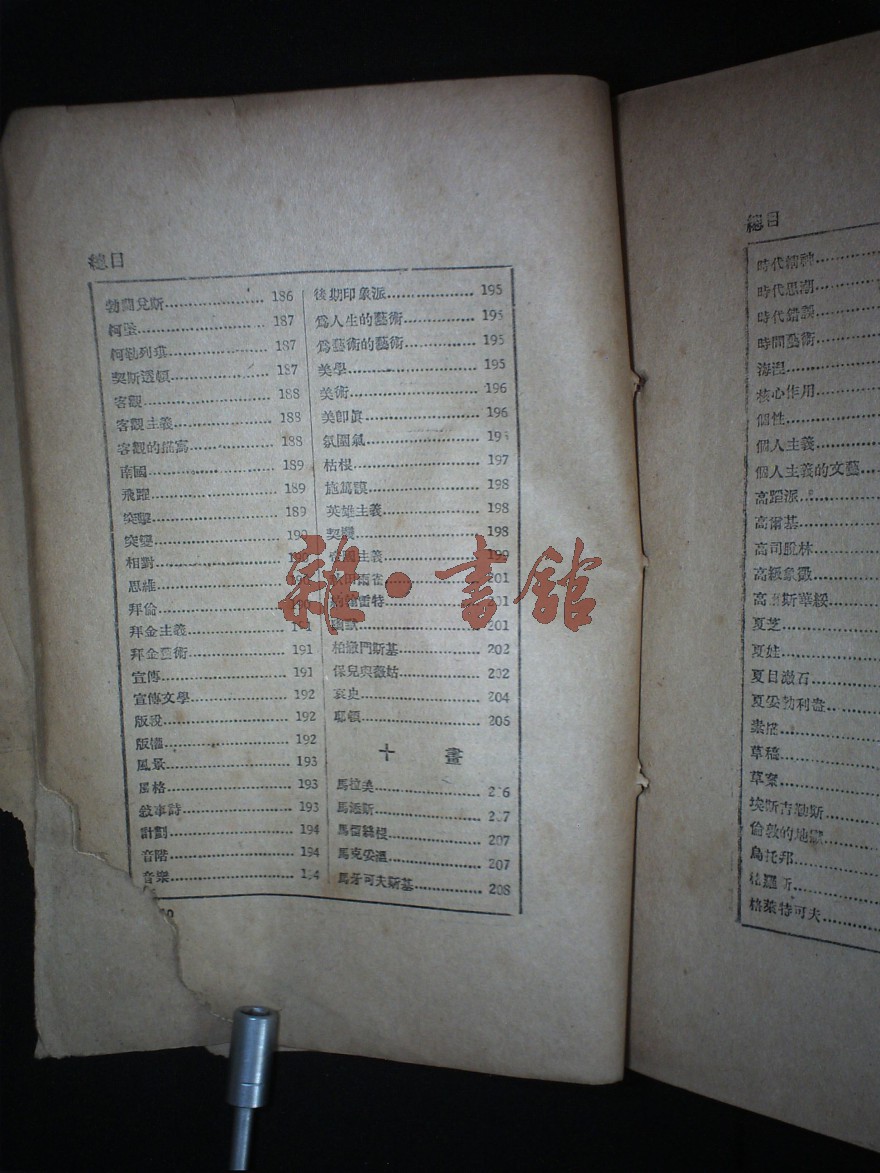 總目
勃蘭兌斯 186
柯 187
柯勒列琪 187
契斯透頓 187
客觀 188
客觀主義 188
客觀的描寫 188
南國 189
飛躍 189
突擊 189
突變
相對
思維
拜倫
拜金主義
拜金藝術 191
宣傳 191
宣傳文學 192
版稅 192
版權 192
風景 193
風格 193
敘事詩 193
計劃 194
音階 194
音樂
後期印象派 195
為人生的藝術 195
為藝術的藝術 195
美學 195
美術 196
美卽眞 196
氛圍氣
枯根 197
施篤謨 198
英雄主義 198
契 198
主義 199
201
雷特 201
幽默 201
柏 門斯基 202
保兒與薇姑 202
哀史 204
耶 206
十 畫
馬拉美
馬 斯
馬雷 根 207
馬克妥溫 207
馬牙可夫斯基 208
雜·書館
總目
時代精神
時代思潮
時代錯誤
時間藝術
海涅
核心作用
個性
個人主義
個人主義的文藝
高蹈派
高爾基
高司脫林
高級象徵
高 斯華綏
夏芝
夏娃
夏目漱石
夏妥勃利盎
素描
草稿
草案
埃斯吉勒斯
倫敦的地獄
烏托邦
格萊特可夫